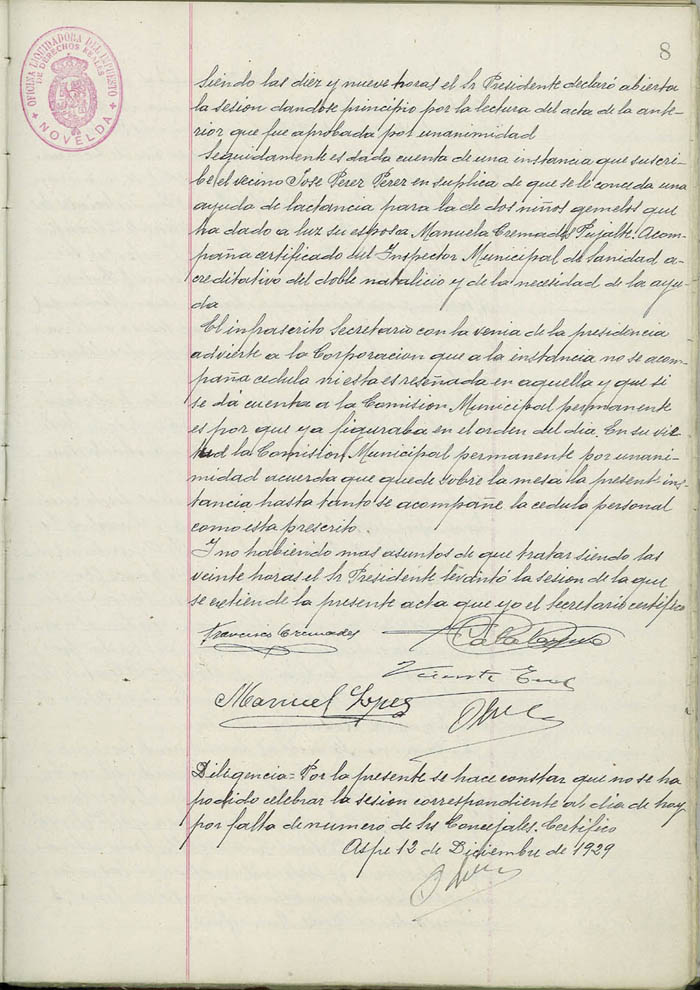 8
OFICINA LIQUIDADORA DEL IMPUESTO
DE DERECHOS REALES
NOVELDA
Siendo las diez y nueve horas el Sr Presidente declaró abierta
la sesion dandose principio por la lectura del acta de la ante-
rior que fue aprobada por unanimidad
Seguidamente es dada cuenta de una instancia que suscri-
be el vecino Jose Perez Perez en suplica de que se le conceda una
ayuda de lactancia para la de dos niños gemelos que
ha dado a luz su esposa Manuela Cremades Pujalte. Acom-
paña certificado del Inspector Municipal de Sanidad a-
creditativo del doble natalicio y de la necesidad de la ayu-
da
El infrascrito Secretario con la venia de la presidencia
advierte a la Corporacion que a la instancia no se acom-
paña cedula ni esta es reseñada en aquella y que si
se dá cuenta a la Comision Municipal permanente
es por que ya figuraba en el orden del dia. En su vir-
tud la Comision Municipal permanente por unani-
midad acuerda que quede sobre la mesa la presente ins-
tancia hasta tanto se acompañe la cedula personal
como esta prescrito.
I no habiendo mas asuntos de que tratar siendo las
veinte horas el Sr Presidente levantó la sesion de la que
se extiende la presente acta que yo el Secretario certifico
Francisco Cremades
Vicente
Manuel Lopez
Diligencia = Por la presente se hace constar que no se ha
podido celebrar la sesion correspondiente al dia de hoy
por falta de numero de Srs Concejales. Certifico
Aspe 12 de Diciembre de 1929